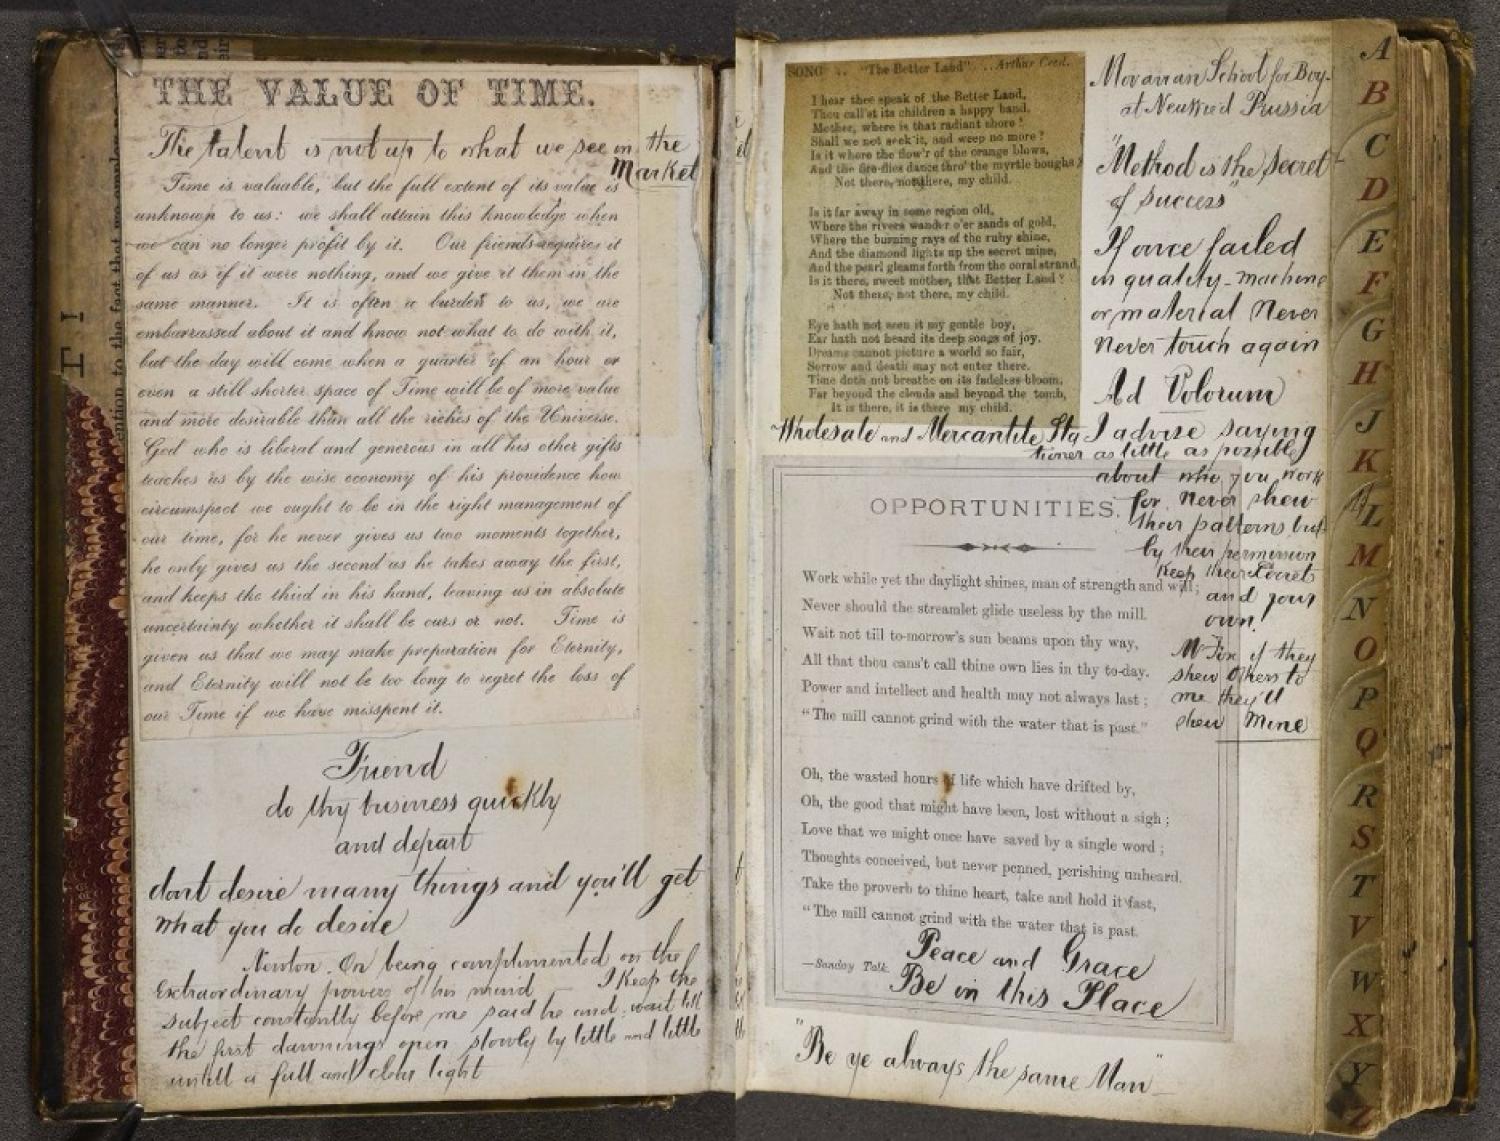 THE VALUE OF TIME.
The talent is not up to what we see in the
Market
Time is valuable, but the full extent of its value is
unknown to us: we shall attain this knowledge when
we can no longer profit by it. Our friends requires it
of us as if it were nothing, and we give it them in the
same manner. It is often a burden to us, we are
embarrassed about it and know not what to do with it,
but the day will come when a quarter of an hour or
even a still shorter space of Time will be of more value
and more desirable than all the riches of the Universe.
God who is liberal and generous in all his other gifts
teaches us by the wise economy of his providence how
circumspect we ought to be in the right management of
our time, for he never gives us two moments together,
he only gives us the second as he takes away the first,
and keeps the third in his hand, leaving us in absolute
uncertainty whether it shall be ours or not. Time is
given us that we may make preparation for Eternity,
and Eternity will not be too long to regret the loss of
our Time if we have misspent it.
Friend
do thy business quickly
and depart
dont desire many things and you'll get
what you do desire
Newton. On being complimented on the
Extraordinary powers of his mind I keep the
subject constantly before me said he and wait till
the first dawnings open slowly by little and little
untill a full and clear light
SONG .. "The Better Land" .. Arthur Cecil.
I hear thee speak of the Better Land,
Thou call'st its children a happy band,
Mother, where is that radiant shore?
Shall we not seek it, and weep no more?
Is it where the flow'r of the orange blows,
And the fire-flies dance thro' the myrtle boughs?
Not there, not there, my child.
Is it far away in some region old,
Where the rivers wander o'er sands of gold,
Where the burning rays of the ruby shine,
And the diamond lights up the secret mine,
And the pearl gleams forth from the coral strand,
Is it there, sweet mother, that Better Land?
Not there, not there, my child.
Eye hath not seen it my gentle boy,
Ear hath not heard its deep songs of joy,
Dreams cannot picture a world so fair,
Sorrow and death may not enter there.
Time doth not breathe on its fadeless bloom,
Far beyond the clouds and beyond the tomb,
It is there, it is there my child.
Moravian School for Boy-
at Neuwied Prussia
"Method is the secret
of success"
If once failed
in quality - machine
or material Never
Never touch again
Ad Volorum
Wholesale and Mercantile Sta
tioner
I advise saying
as little as possible
about who you work
for never shew
their patterns but
by their permission
Keep their secrets
and your
own!
if they
shew others to
me they'll
shew Mine
OPPORTUNITIES.
Work while yet the daylight shines, man of strength and will;
Never should the streamlet glide useless by the mill.
Wait not till to-morrow's sun beams upon thy way,
All that thou cans't call thine own lies in thy to-day.
Power and intellect and health may not always last;
"The mill cannot grind with the water that is past."
Oh, the wasted hours of life which have drifted by,
Oh, the good that might have been, lost without a sigh;
Love that we might once have saved by a single word;
Thoughts conceived, but never penned, perishing unheard.
Take the proverb to thine heart, take and hold it fast,
"The mill cannot grind with the water that is past.
—Sunday Talk.
Peace and Grace
Be in this Place
"Be ye always the same Man"
A
B
C
D
E
F
G
H
J
K
L
M
N
O
P
Q
R
S
T
V
W
X
Y
Z